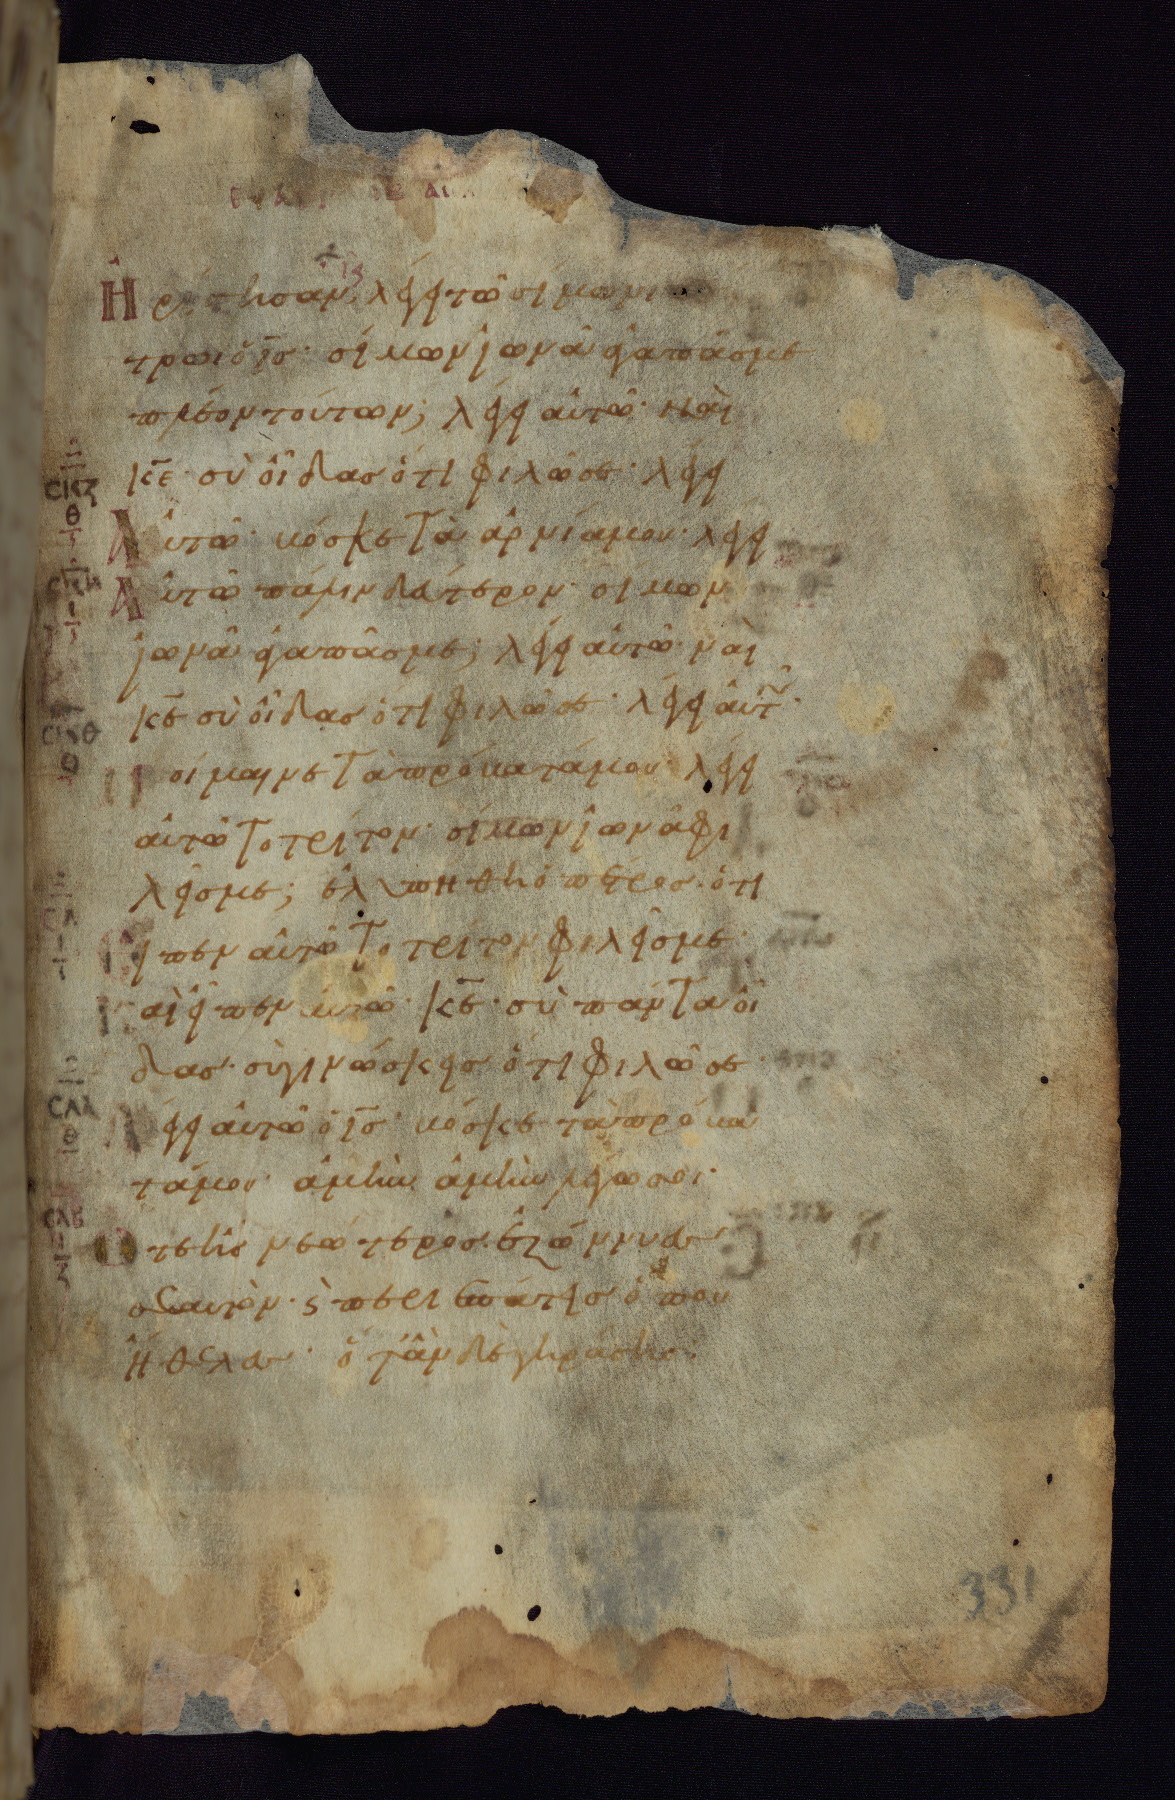 Ηρίστησαν, λέγει τῶ σίμωνι
τρωι ὁ ις· σίμων ἰωνᾶ ἀγαπᾶς με
πλέον τούτων; λέγει αὐτῶ· ναὶ
κε· σὺ οἶδας ὅτι φιλῶ σε· λέγει
Αὐτῶ· βόσκε τὰ ἀρνία μου· λέγει
Αὐτῶ πάλιν δεύτερον· σίμων
ἰωνᾶ ἀγαπᾶς με; λέγει αὐτῶ· ναὶ
κε σὺ οἶδας ὅτι φιλῶ σε· λέγει αὐτῶ·
Ποίμαινε τὰ πρόβατά μου· λέγει
αὐτῶ τὸ τρίτον· σίμων ἰωνᾶ φι
λεῖς με; ἐλυπήθη ὁ πέτρος· ὅτι
εἶπεν αὐτῶ τὸ τρίτον φιλεῖς με·
Καὶ εἶπεν αὐτῶ· κε· σὺ πάντα οἶ
δας· σὺ γινώσκεις ὅτι φιλῶ σε·
Λέγει αὐτῶ ὁ ις· βόσκε τὰ πρόβα
τά μου· ἀμὴν ἀμὴν λέγω σοι·
Ὅτε ἦς νεώτερος· ἐζώννυας
σεαυτὸν· ϛ περιεπάτεις ὅπου
ἤθελας· ὅταν δὲ γηράσης·
σκζ
θ
σκη
ι
σκθ
θ
σλ
ι
σλα
θ
σλβ
ι
331